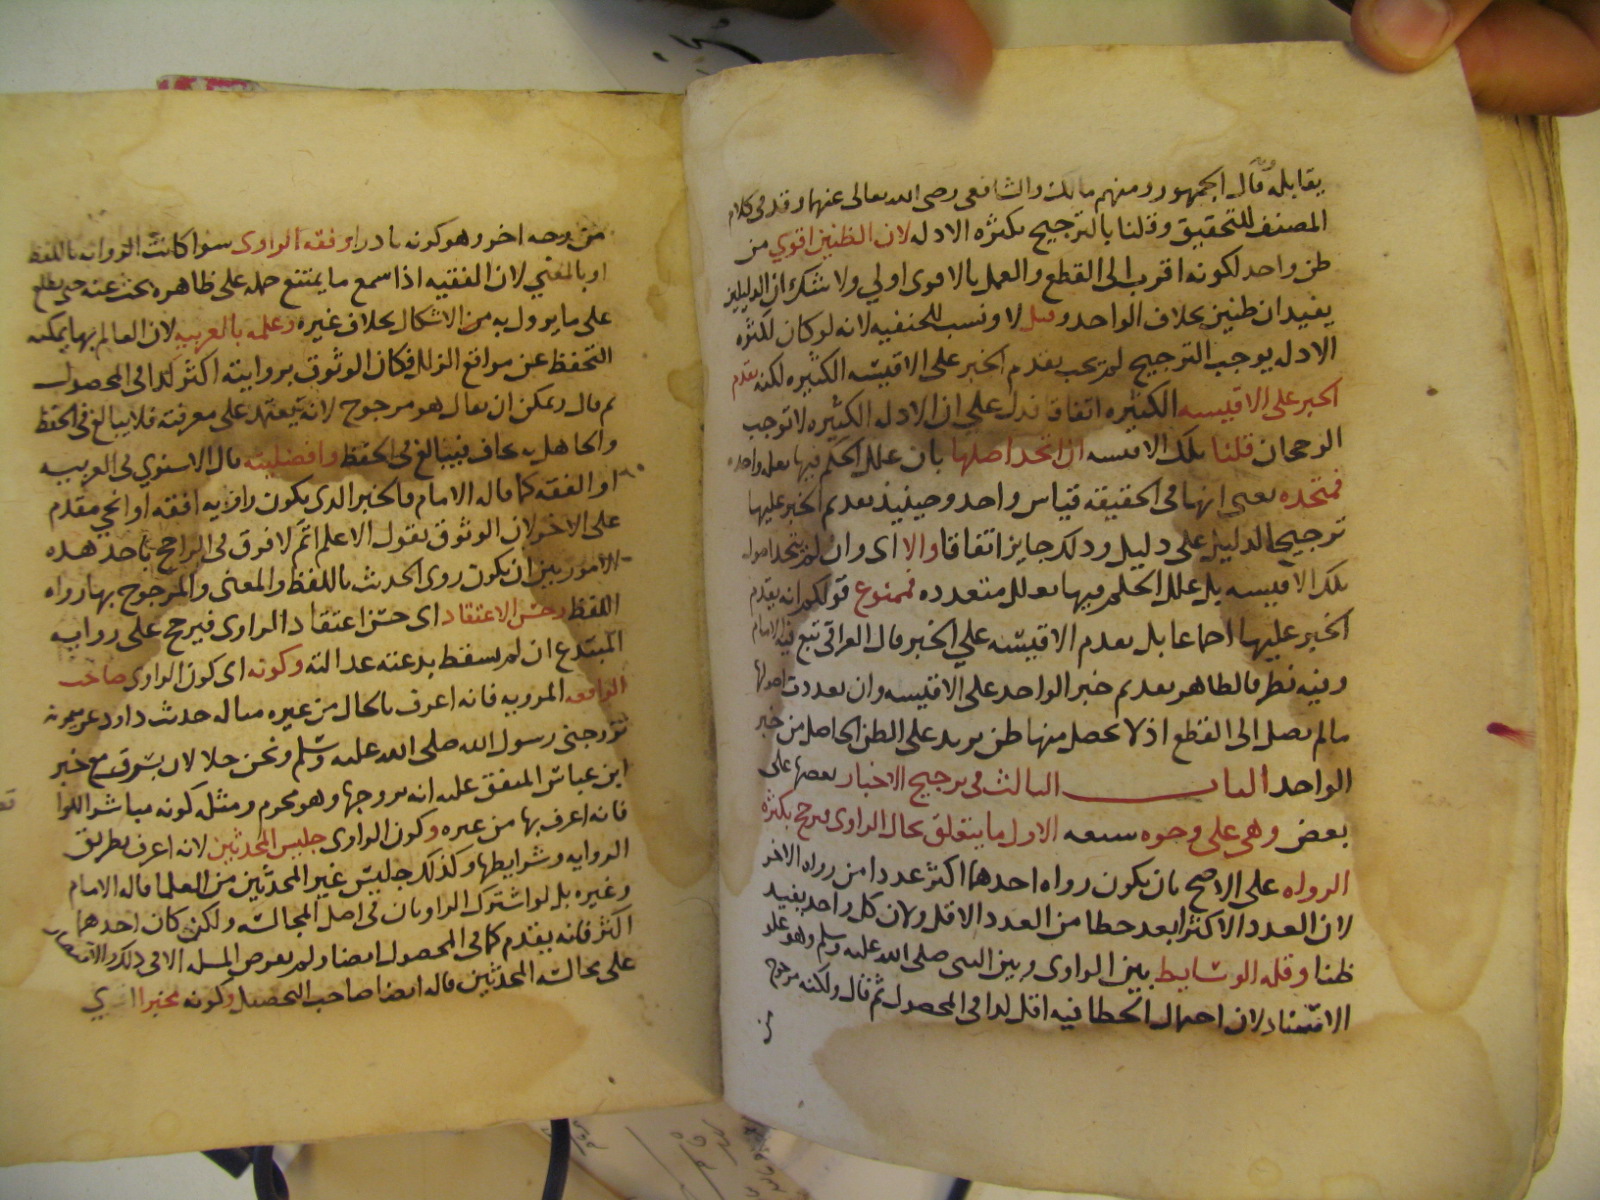 يقابله قال الجمهور ومنهم مالك والشافعى رضى الله تعالى عنهما وقد فى كلام
المصنف للتحقيق وقلنا بالترجيح بكثره الادله لان الظنين اقوي من
ظن واحد لكونه اقرب الى القطع والعمل بالاقوى اولي ولا شك ان الدليلين
يفيدان ظنين بخلاف الواحد وقيل لا ونسب للحنفيه لانه لو كان لكثره
الادله يوجب الترجيح لم يجب تقدم الخبر على الاقيسه الكثيره لكنه يقدم
الخبر على الاقيسه الكثيره اتفاقا فدل على ان الادله الكثيره لا توجب
الرجحان قلنا تلك الاقيسه ان اتحد اصلها بان علل الحكم فيها بعله واحده
فمتحده يعنى انها فى الحقيقه قياس واحد وحينيذ تقديم الخبر عليها
ترجيح الدليل على دليل وذلك جايز اتفاقا والا اى وان لم يتحد اصول
تلك الاقيسه بل علل الحكم فيها بعلل متعدده فممنوع قولكم انه يقدم
الخبر عليها اجماعا بل تقدم الاقيسه علي الخبر قال العراقى تبع فيه الامام
وفيه نظر فالظاهر تقديم خبر الواحد على الاقيسه وان تعددت اصولها
مالم يصل الى القطع اذ لا يحصل منها ظن يزيد على الظن الحاصل من خبر
الواحد الباب الثالث فى ترجيح الاخبار بعضها على
بعض وهى على وجوه سبعه الاول ما يتعلق بحال الراوى فيرجح بكثره
الرواه على الاصح بان يكون رواه احدهما اكثر عددا من رواه الاخر
لان العدد الاكثر ابعد خطا من العدد الاقل ولان كل واحد يفيد
ظنا وقله الوسايط بين الراوى وبين النبى صلى الله عليه وسلم وهو علو
الاسناد لان احتمال الخطا فيه اقل كذا فى المحصول ثم قال ولكنه مرجوح
من
من وجه اخر وهو كونه نادرا وفقه الراوى سوا كانت الروايه باللفظ
او بالمعني لان الفقيه اذا سمع ما يمتنع حمله على ظاهره بحث عنه حتى يطلع
على ما يزول به من الاشكال بخلاف غيره وعلمه بالعربيه لان العالم بها يمكنه
التحفظ عن مواقع الزلل فكان الوثوق بروايته اكثر كذا فى المحصول
ثم قال ويمكن ان يقال هو مرجوح لانه يعتمد على معرفته فلا يبالغ فى الحفظ
والجاهل به يخاف فيبالغ فى الحفظ وافضليته قال الاسنوي فى العربيه
او الفقه كما قاله الامام فالخبر الذى يكون راويه افقه او انحي مقدم
على الاخر لان الوثوق بقول الاعلم اتم لا فرق فى الراجح باحد هذه
الامور بين ان يكون روى الحديث باللفظ والمعنى والمرجوح بها رواه
اللفظ وحسن الاعتقاد اى حسن اعتقاد الراوى فيرجح على روايه
المبتدع ان لم يسقط بدعته عدالته وكونه اى كون الراوى صاحب
الواقعه المرويه فانه اعرف بالحال من غيره مثاله حديث داود عن ميمونه
تزوجنى رسول الله صلى الله عليه وسلم ونحن حلالان بسرف مع خبر
ابن عباس المتفق عليه انه تزوجها وهو محرم ومثله كونه مباشر اللوا
فانه اعرف بها من غيره وكون الراوى جليس المحدثين لانه اعرف بطريق
الروايه وشرايطها وكذلك جليس غير المحدثين من العلما قاله الامام
وغيره بل لو اشترك الراويان فى اصل المجالسه ولكن كان احدهما
اكثر فانه يقدم كما فى المحصول ايضا ولم يعرض المسله الا فى ذلك والاقتصار
على مجالسه المحدثين قاله ايضا صاحب التحصيل وكونه مختبرا